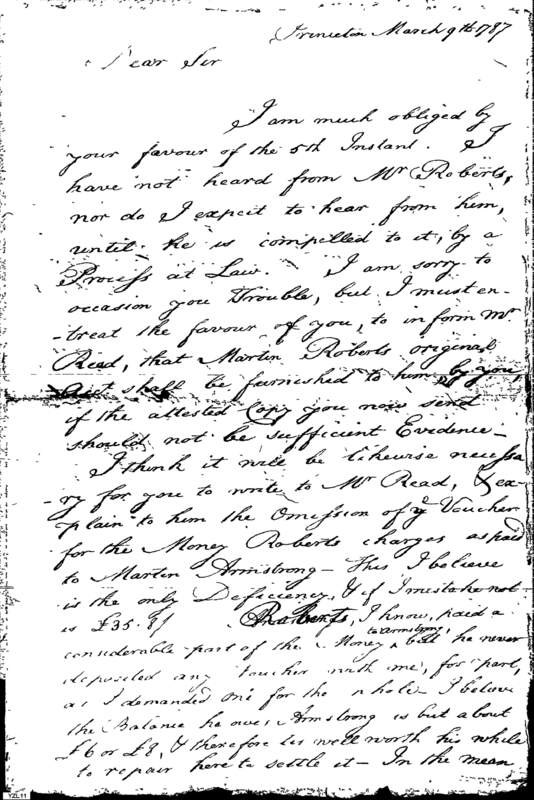 Princeton March 9th 1787
Dear Sir
I am much obliged by
your favour of the 5th Instant. I
have not heard from Mr Roberts,
nor do I expect to hear from him,
until he is compelled to it, by a
Process at Law. I am sorry to
occasion you Trouble, but I must en-
-treat the favour of you, to inform Mr
Read, that Martin Roberts original
shall be furnished to him by you,
if the attested Copy you now send
should not be sufficient Evidence—
I think it will be likewise necessa
ry for you to write to Mr Read, & ex-
-plain to him the Omission of ye Voucher
for the Money Roberts charges as paid
to Martin Armstrong— this I believe
is the only Deficiency, & if I mistake not—
is £35.8 Roberts, I know, paid a
considerable part of the Money to Armstrong, but he never
deposited any Voucher with me, for part,
as I demanded one for the whole— I believe
the Balance he owes Armstrong is but about
£6 or £8, & therefore tis well worth his while
to repair here to settle it— In the mean
YZL11